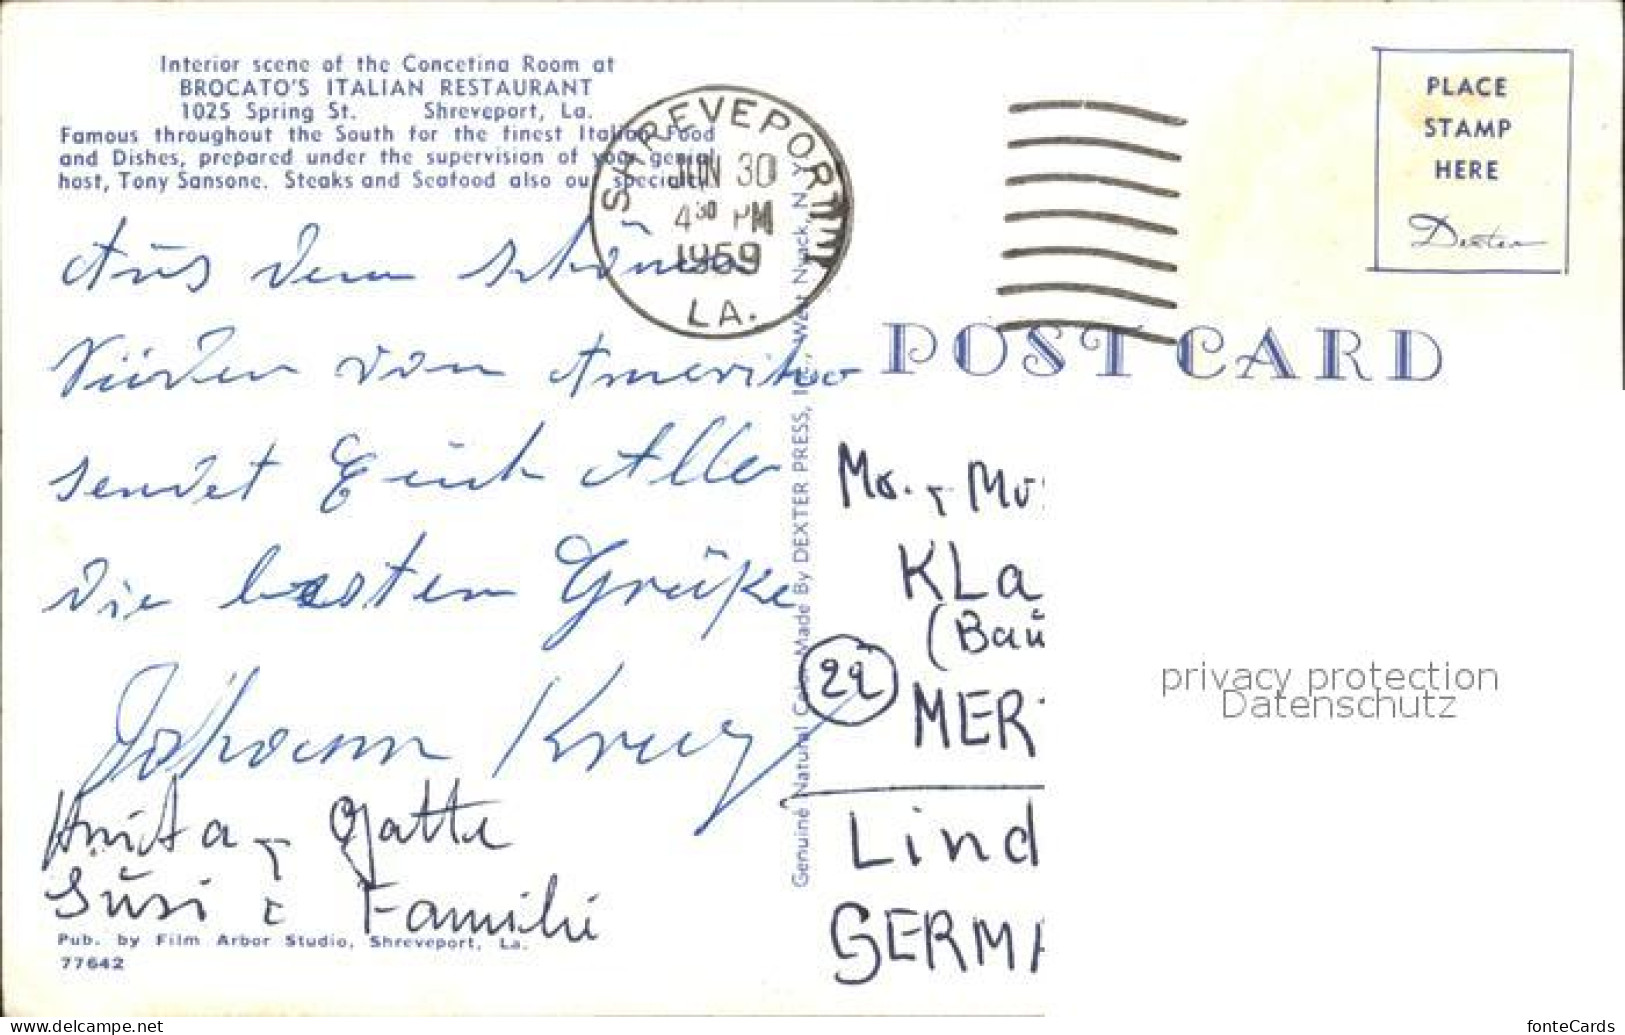 Interior scene of the Concetina Room at
BROCATO'S ITALIAN RESTAURANT
1025 Spring St. Shreveport, La.
Famous throughout the South for the finest Italian Food
and Dishes, prepared under the supervision of your genial
host, Tony Sansone. Steaks and Seafood also our specialty
SHREVEPORT
JUN 30
4 30 PM
1969
LA.
PLACE
STAMP
HERE
Dexter
POST CARD
Aus dem schönen
Süden von Amerika
sendet Euch Alle
die besten Grüße
Johann Krug
Anita + Gatte
Susi + Familie
Pub. by Film Arbor Studio, Shreveport, La.
77642
Genuine Natural Color Made By DEXTER PRESS, Inc., West Nyack, N.Y.
Mr. + Mr
KLa
(Bau
22
MER
Lind
GERMA
privacy protection
Datenschutz
www.delcampe.net
fonteCards